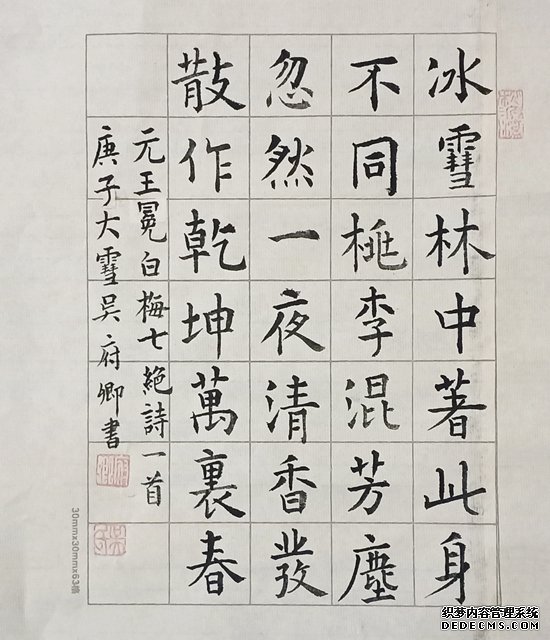 冰雪林中著此身
不同桃李混芳塵
忽然一夜清香發
散作乾坤萬裏春
元王冕白梅七絶詩一首
庚子大雪吳府卿書
30mmx30mmx63格
织梦内容管理系统
DEDECMS.COM